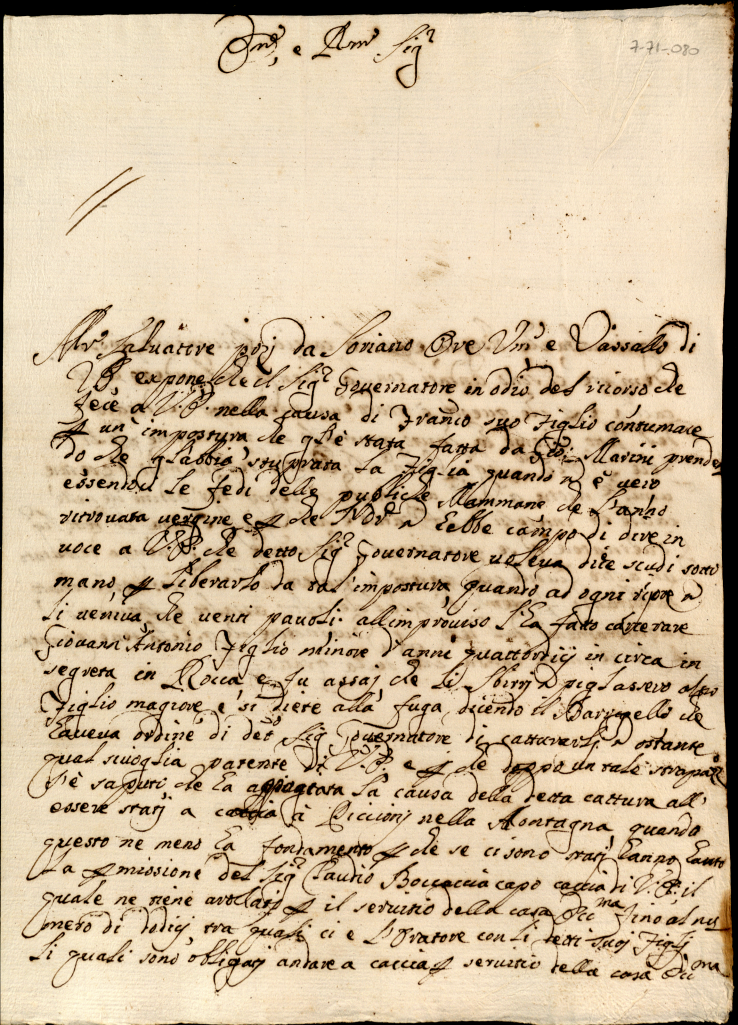 7-71-080
Em.o e Rm.o Sig.r
M.ro Salvatore porj da Soriano Ore Um.e e Vassallo di
V.P. espone, che il Sig.r Governatore in odio del ricorso che
fece a V.P. nella causa di Franco suo Figlio contumace
p un' impostura che gl'è stata fatta da Marini
do che gl'abbia stuprata la Figlia quando n è vero
essendoci le fedi delle publiche Mammane che l'anno
ritrovata vergine e p che n ebbe campo di dire in
voce a V.P. che detto Sig.r Governatore voleva dieci scudi sotto
mano p liberarlo da tal' impostura quando ad ogni n
li veniva che venti pavoli. all' improviso l'ha fatto carcerare
Giovanni Antonio Figlio minore d'anni quattordicj in circa in
segreta in Rocca e fu assaj che li Sbirrj n pigliassero altro
Figlio magiore e si diete alla fuga, dicendo il Bargello che
haveva ordine di det.o Sig. Governatore di catturarli n ostante
qual sivoglia patente di V.P. e p che doppo un tale strapazzo
s'è saputi che ha la causa della detta cattura all'
essere statj a caccia à Piccionj nella Montagna quando
questo ne meno ha fondamento p che se ci sono statj hanno hauto
la pmissione del Sig.r Claudio Boccaccia capo caccia di V.P. il
quale ne tiene p il servitio della casa Ecc.ma fino al nu
mero di dodicj tra quali ci e l'Oratore con li detti suoj Figlj
li quali sono obligatj andare a caccia p servitio della casa Ecc.ma